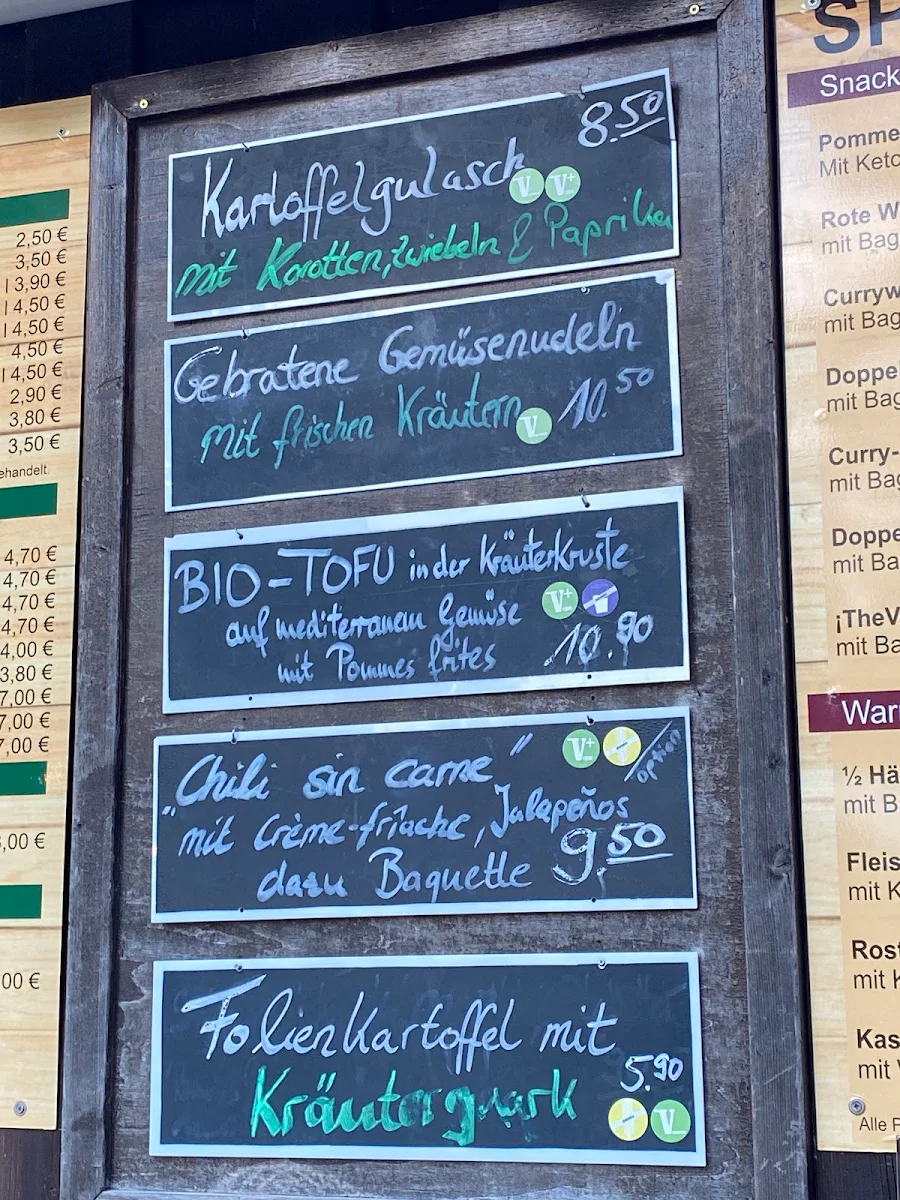 2,50 €
3,50 €
| 3,90 €
| 4,50 €
| 4,50 €
4,50 €
| 4,50 €
2,90 €
3,80 €
3,50 €
ehandelt.
4,70 €
4,70 €
4,70 €
4,70 €
4,00 €
3,80 €
7,00 €
7,00 €
7,00 €
,00 €
00 €
8.50
Kartoffelgulasch V V+
mit Karotten, zwiebeln & Paprika
Gebratene Gemüsenudeln
mit frischen Kräutern V 10.50
BIO-TOFU in der Kräuterkruste
auf mediterranem Gemüse V+
mit Pommes frites 10.90
"Chili sin carne" V+ option
mit Crème-frîache, Jalapeños
dazu Baguette 9.50
Folienkartoffel mit
Kräuterquark 5.90
V
SP
Snack
Pomme
Mit Ketc
Rote W
mit Bag
Curryw
mit Bag
Doppe
mit Bag
Curry-
mit Bag
Doppe
mit Ba
¡TheV
mit Ba
War
½ Hä
mit B
Fleis
mit K
Rost
mit K
Kas
mit
Alle P